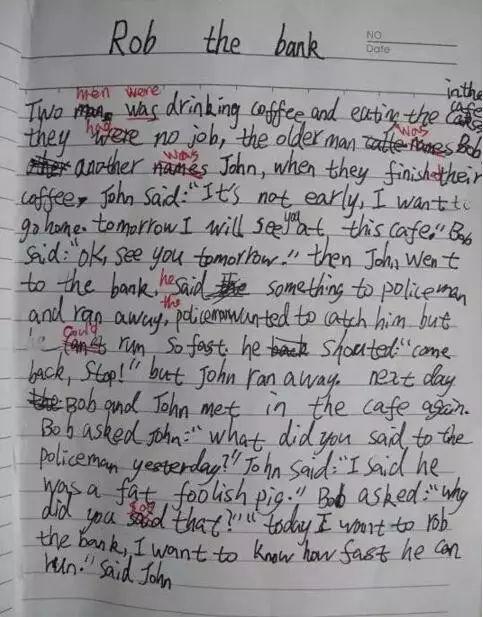 Rob the bank
NO
Date
in the
men were cafe
Two was drinking coffee and eating the
had was
they were no job, the older man names Bob
was
another names John, when they finished their
coffee, John said: "It's not early, I want to
you
go home. tomorrow I will see at this cafe." Bob
said: "ok, see you tomorrow." then John went
he
to the bank, said something to policeman
the
and ran away, policeman wanted to catch him but
could
he run so fast. he back shouted: "come
back, stop!" but John ran away. next day
the Bob and John met in the cafe again.
Bob asked John: "what did you said to the
policeman yesterday?" John said: "I said he
was a fat foolish pig." Bob asked: "why
say
did you said that?" "today I want to rob
the bank, I want to know how fast he can
run." said John